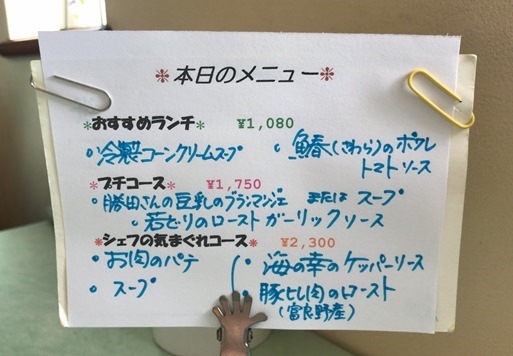 *本日のメニュー*
*おすすめランチ* ¥1,080
・冷製コーンクリームスープ ・鰆(さわら)のポワレ
トマトソース
*プチコース* ¥1,750
・勝田さんの豆乳のブランマンジェ または スープ
・若どりのロースト ガーリックソース
*シェフの気まぐれコース* ¥2,300
・お肉のパテ ・海の幸のケッパーソース
・スープ ・豚ヒレ肉のロースト
(富良野産)